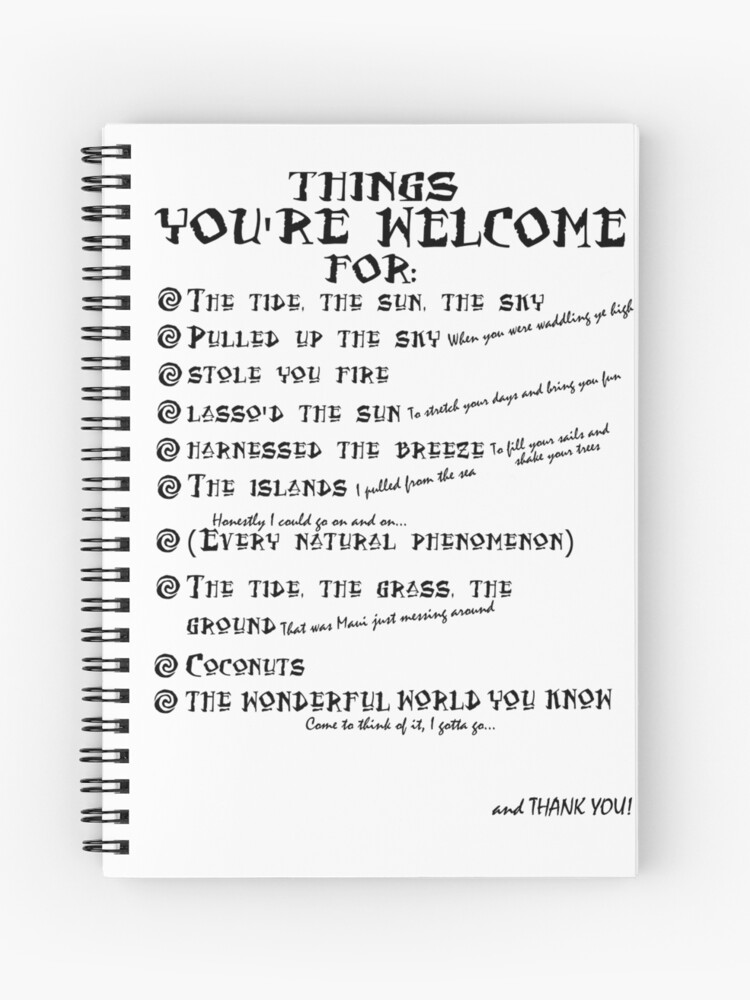 THINGS
YOU'RE WELCOME
FOR:
THE TIDE, THE SUN, THE SKY
PULLED UP THE SKY When you were waddling ye high
STOLE YOU FIRE
LASSO'D THE SUN To stretch your days and bring you fun
HARNESSED THE BREEZE To fill your sails and
shake your trees
THE ISLANDS I pulled from the sea
Honestly I could go on and on...
(EVERY NATURAL PHENOMENON)
THE TIDE, THE GRASS, THE
GROUND That was Maui just messing around
COCONUTS
THE WONDERFUL WORLD YOU KNOW
Come to think of it, I gotta go...
and THANK YOU!